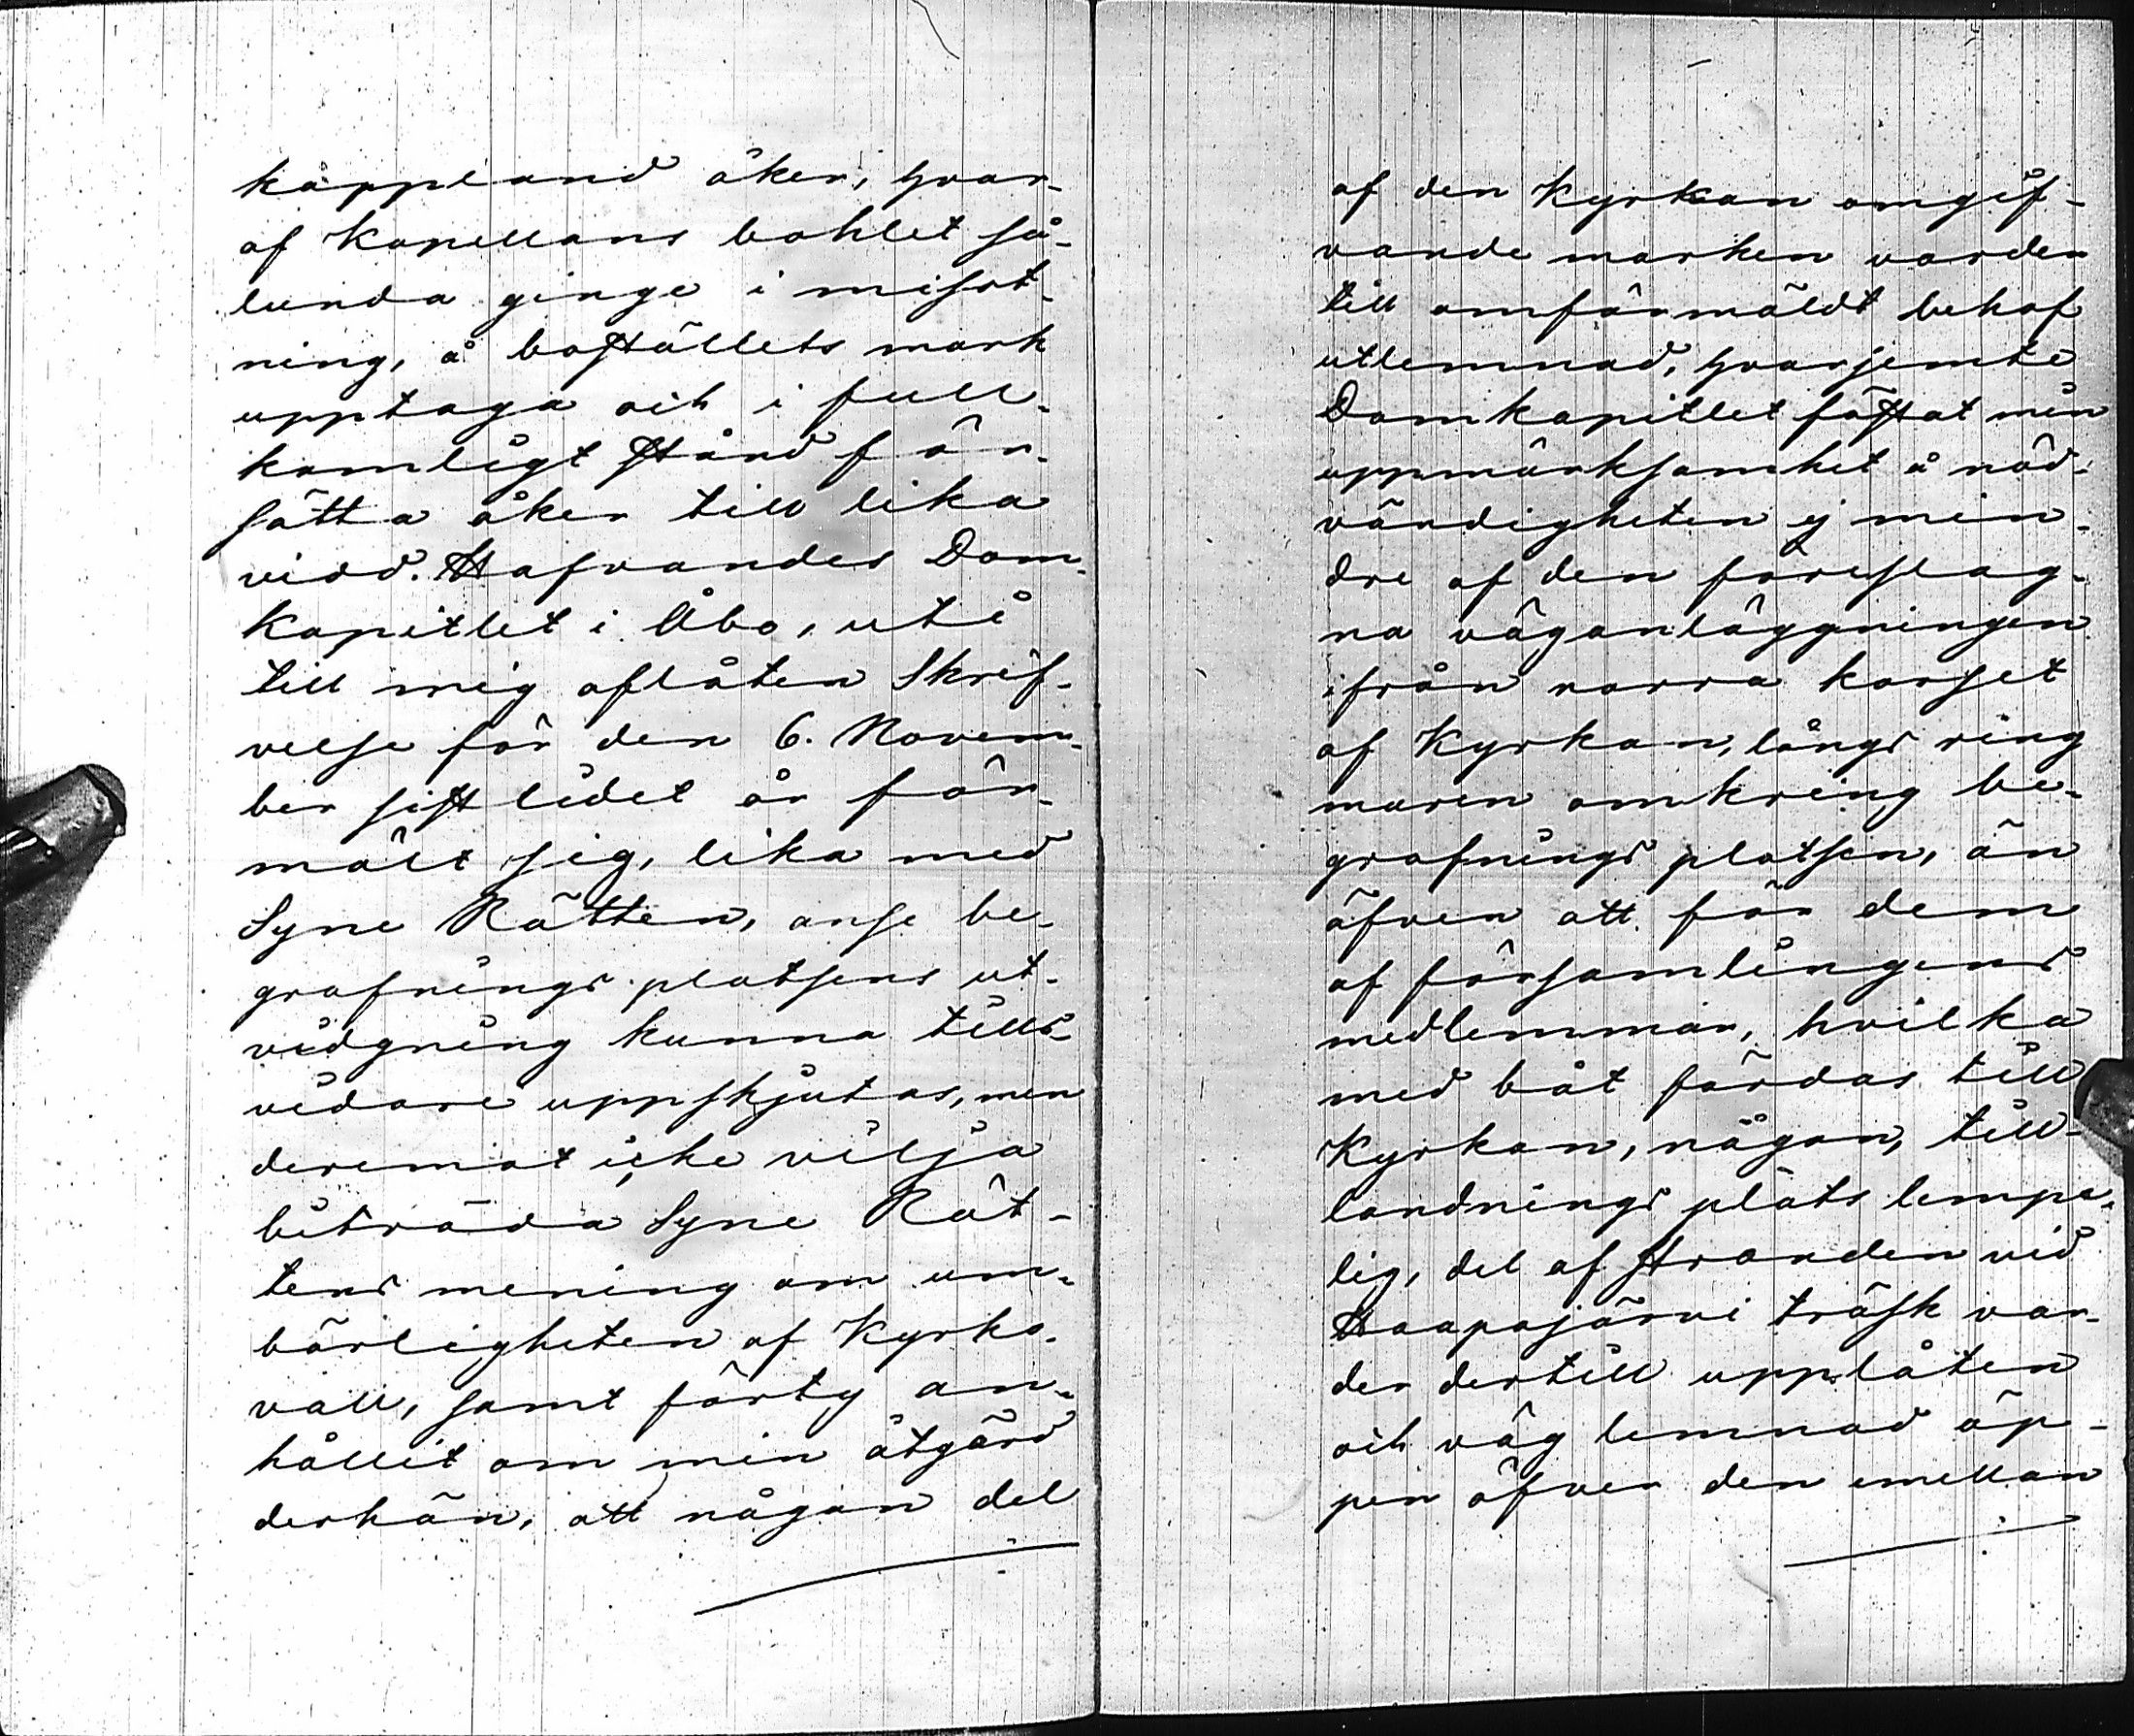 kappland åker, hvar-
af Kapellans bohlet så-
lunda ginge i misst-
ning, å boställets mark
upptaga och i full-
komligt stånd för-
sätta åker till lika
vidd. Hafvandes Dom-
Kapitlet i Åbo, uti
till mig aflåten Skrif-
velse för den 6. Novem-
ber sistlidet år för-
mält sig, lika med
Syne Rätten, anse be-
grafnings platsens ut-
vidgning kunna tills-
vidare uppskjutas, men
deremot icke vilja
biträda Syne Rät-
tens mening om um-
bärligheten af Kyrko-
vall, samt förty an-
hållit om min åtgärd
derhän, att någon del
af den Kyrkan omgif-
vande marken varder
till omförmäldt behof
utlemnad, hvarjemte
Domkapitlet fästat min
uppmärksamhet å nöd-
vändigheten ej min-
dre af den föreslag-
na väganläggningen
ifrån norra korset
af Kyrkan, längs ring
muren omkring be-
grafnings platsen, än
äfven att för dem
af församlingens
medlemmar, hvilka
med båt färdas till
Kyrkan, någon, till
landnings plats lempe-
lig, del af stranden vid
Haapajärvi träsk var-
der dertill upplåten
och väg lemnad öp-
pen öfver den emellan